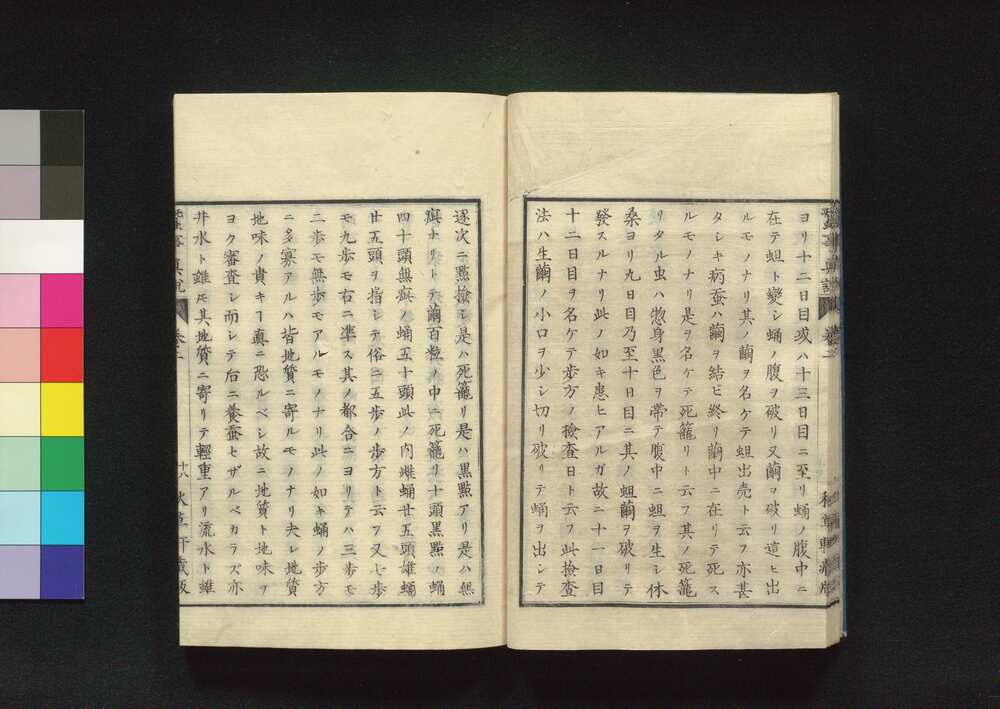 ヨリ十二日目或ハ十三日目ニ至リ蛹ノ腹中ニ
在テ蛆ト變シ蛹ノ腹ヲ破リ又繭ヲ破リ這ヒ出
ルモノナリ其ノ繭ヲ名ケテ蛆出売ト云フ亦甚
タシキ病蚕ハ繭ヲ結ヒ終リ繭中ニ在リテ死ス
ルモノナリ是ヲ名ケテ死籠リト云フ其ノ死籠
リタル虫ハ惣身黒色ヲ帯テ腹中ニ蛆ヲ生シ休
桑ヨリ九日目乃至十日目ニ其ノ蛆繭ヲ破リテ
發スルナリ此ノ如キ患ヒアルガ故ニ十一日目
十二日目ヲ名ケテ歩方ノ撿査日ト云フ此撿査
法ハ生繭ノ小口ヲ少シ切リ破リテ蛹ヲ出シテ
逐次ニ點撿シ是ハ死籠リ是ハ黒點アリ是ハ無
病ナリトテ繭百粒ノ中ニ死籠リ十頭黒點ノ蛹
四十頭無病ノ蛹五十頭此ノ内雌蛹廿五頭雄蛹
廿五頭ヲ指シテ俗ニ五歩ノ歩方ト云フ又七歩
モ九歩モ右ニ準ス其ノ都合ニヨリテハ三歩モ
二歩モ無歩モアルモノナリ此ノ如キ蛹ノ歩方
ニ多寡アルハ皆地質ニ寄ルモノナリ夫レ地質
地味ノ貴キヿ真ニ恐ルベシ故ニ地質ト地味ヲ
ヨク審査シ而シテ后ニ養蚕セザルベカラズ亦
井水ト雖モ其地質ニ寄リテ輕重アリ流水ト雖
蚕事真説 巻二 十八